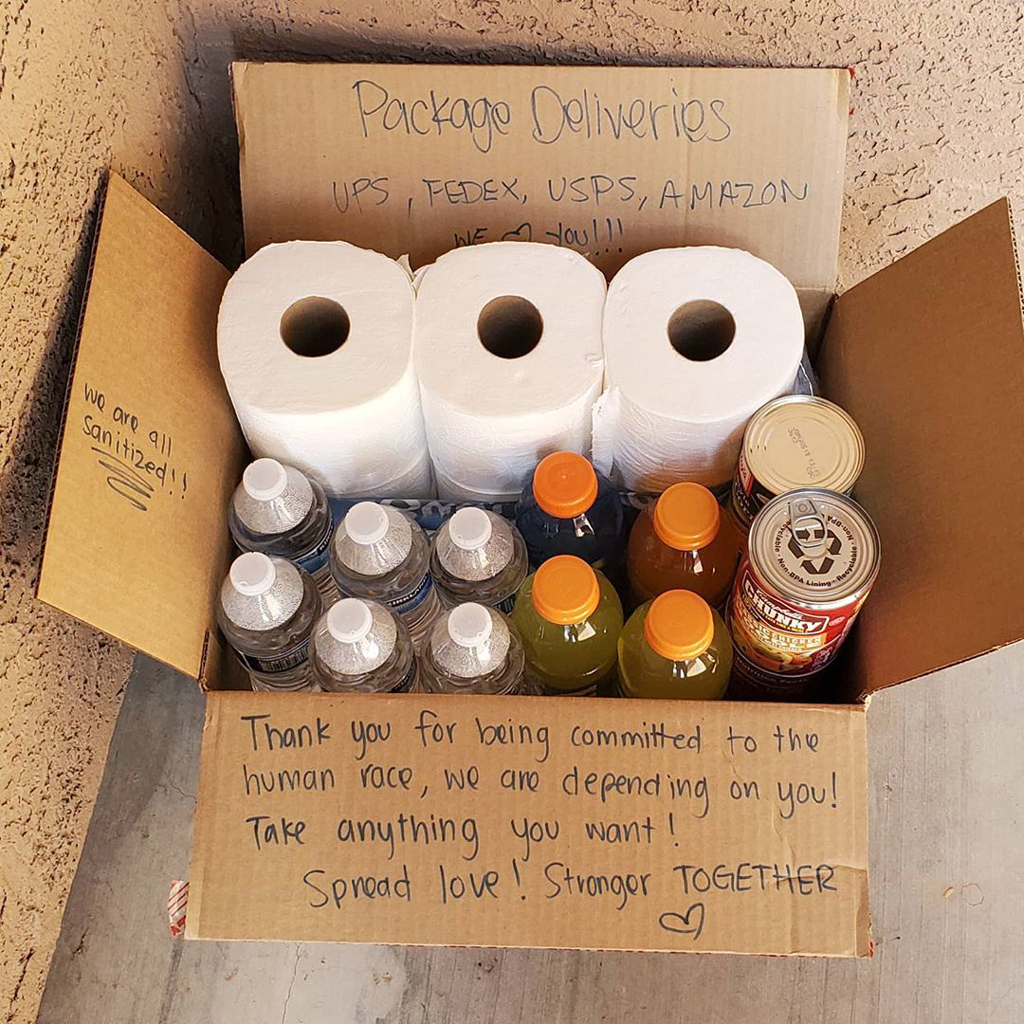 Package Deliveries
UPS, FEDEX, USPS, AMAZON
WE ♡ YOU!!!
we are all
sanitized!!
Non-BPA Lining - Recyclable
Non-BPA
CHUNKY
Thank you for being committed to the
human race, we are depending on you!
Take anything you want!
Spread love! Stronger TOGETHER
♡